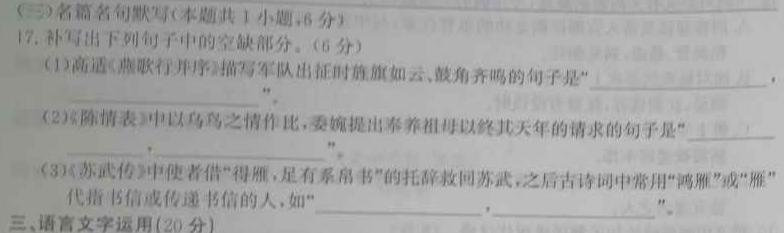 (三)名篇名句默写(本题共1小题,6分)
17.补写出下列句子中的空缺部分。(6分)
(1)高适《燕歌行并序》描写军队出征时旌旗如云、鼓角齐鸣的句子是“____________,
____________”。
(2)《陈情表》中以乌鸟之情作比,委婉提出奉养祖母以终其天年的请求的句子是“______
______,____________”。
(3)《苏武传》中使者借“得雁,足有系帛书”的托辞救回苏武,之后古诗词中常用“鸿雁”或“雁”
代指书信或传递书信的人,如“____________,____________”。
三、语言文字运用(20分)